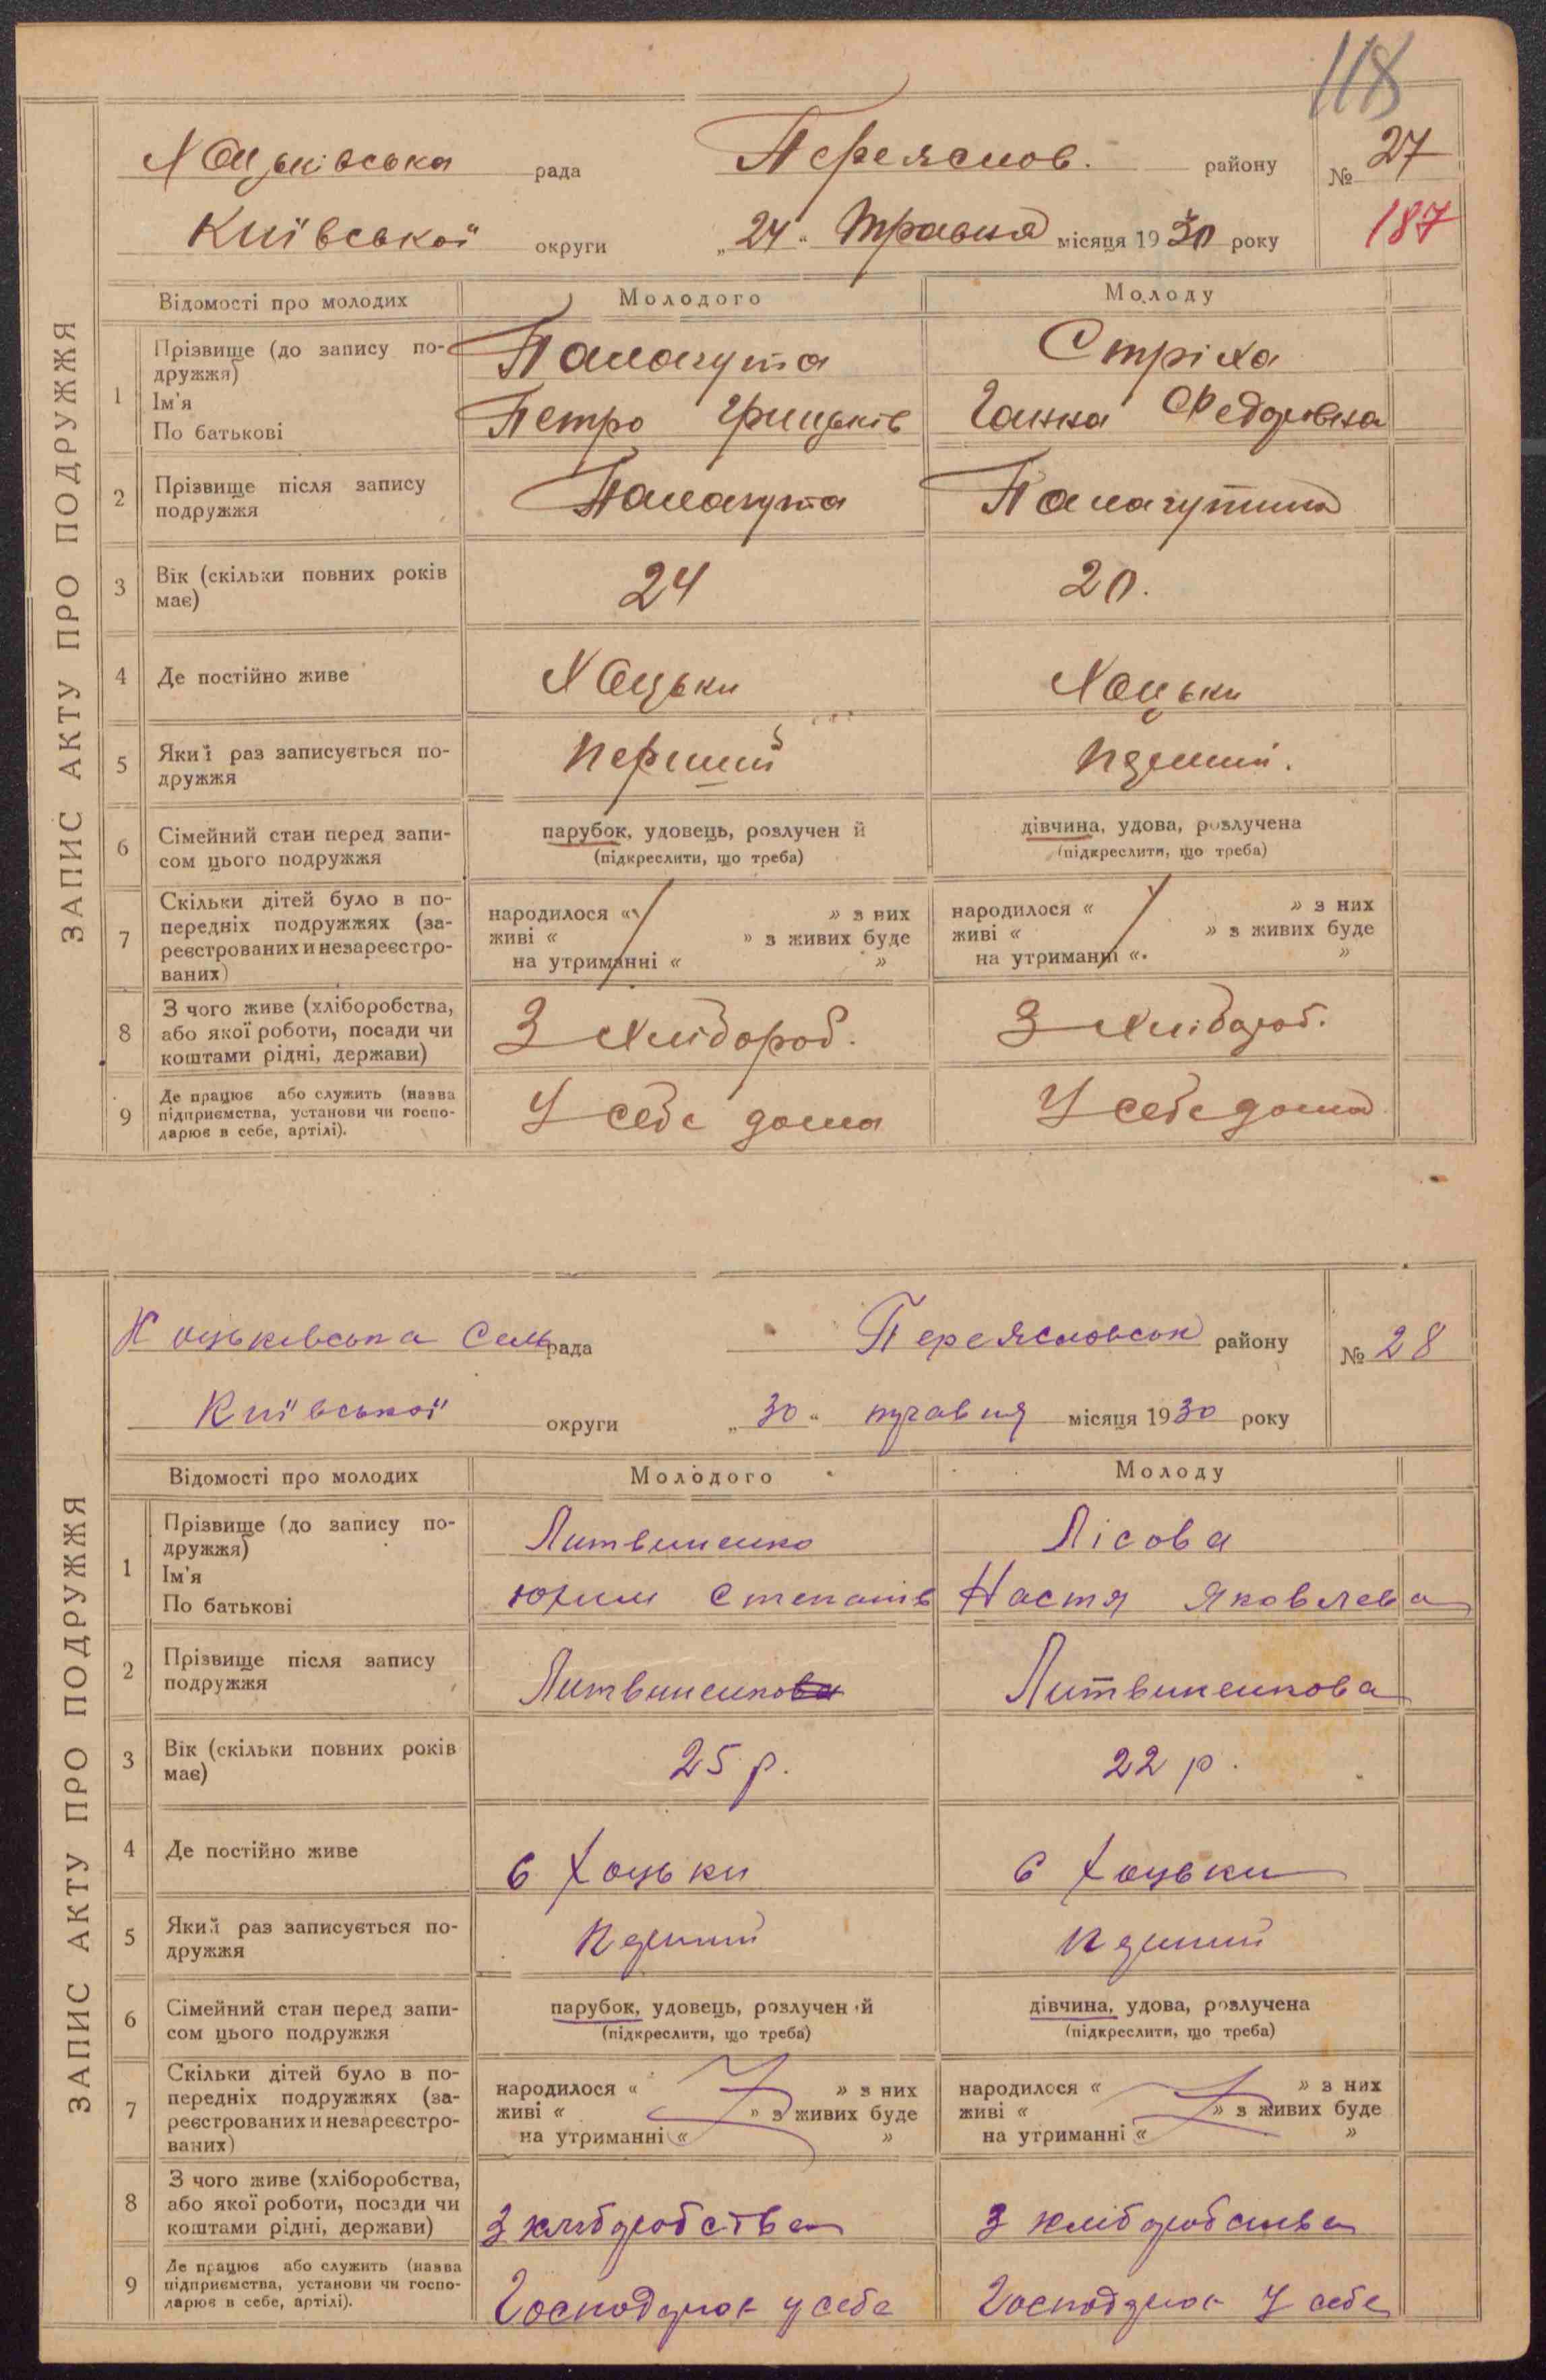 118
Хоцьківська рада Переяслов. району № 27
Київської округи „24“ травня місяця 1930 року 187
ЗАПИС АКТУ ПРО ПОДРУЖЖЯ
Відомості про молодих Молодого Молоду
1 Прізвище (до запису по-
дружжя) Палагута Стріха
Ім'я
По батькові Петро Грицьків Ганна Федоровна
2 Прізвище після запису
подружжя Палагута Палагутина
3 Вік (скільки повних років
має) 24 20.
4 Де постійно живе Хоцьки Хоцьки
5 Який раз записується по-
дружжя перший перший.
6 Сімейний стан перед запи-
сом цього подружжя
парубок, удовець, розлучен й дівчина, удова, розлучена
(підкреслити, що треба) (підкреслити, що треба)
7 Скільки дітей було в по-
передніх подружжях (за-
реєстрованих и незареєстро-
ваних)
народилося « » з них народилося « » з них
живі « » з живих буде живі « » з живих буде
на утриманні « » на утриманні « »
8 З чого живе (хліборобства,
або якої роботи, посади чи
коштами рідні, держави) З хлібороб. З хлібороб.
9 Де працює або служить (назва
підприємства, установи чи госпо-
дарює в себе, артілі). У себе дома У себе дома
Хоцьківська Сельрада Переясловськ району № 28
Київської округи „30“ травня місяця 1930 року
ЗАПИС АКТУ ПРО ПОДРУЖЖЯ
Відомості про молодих Молодого Молоду
1 Прізвище (до запису по-
дружжя) Литвиненко Лісова
Ім'я
По батькові Юхим Степанів Настя Яковлева
2 Прізвище після запису
подружжя Литвиненкова Литвиненкова
3 Вік (скільки повних років
має) 25 р. 22 р.
4 Де постійно живе с Хоцьки с Хоцьки
5 Який раз записується по-
дружжя перший перший
6 Сімейний стан перед запи-
сом цього подружжя
парубок, удовець, розлучен й дівчина, удова, розлучена
(підкреслити, що треба) (підкреслити, що треба)
7 Скільки дітей було в по-
передніх подружжях (за-
реєстрованих и незареєстро-
ваних)
народилося « » з них народилося « » з них
живі « » з живих буде живі « » з живих буде
на утриманні « » на утриманні « »
8 З чого живе (хліборобства,
або якої роботи, посади чи
коштами рідні, держави) З хліборобства З хліборобства
9 Де працює або служить (назва
підприємства, установи чи госпо-
дарює в себе, артілі). у себе У себе